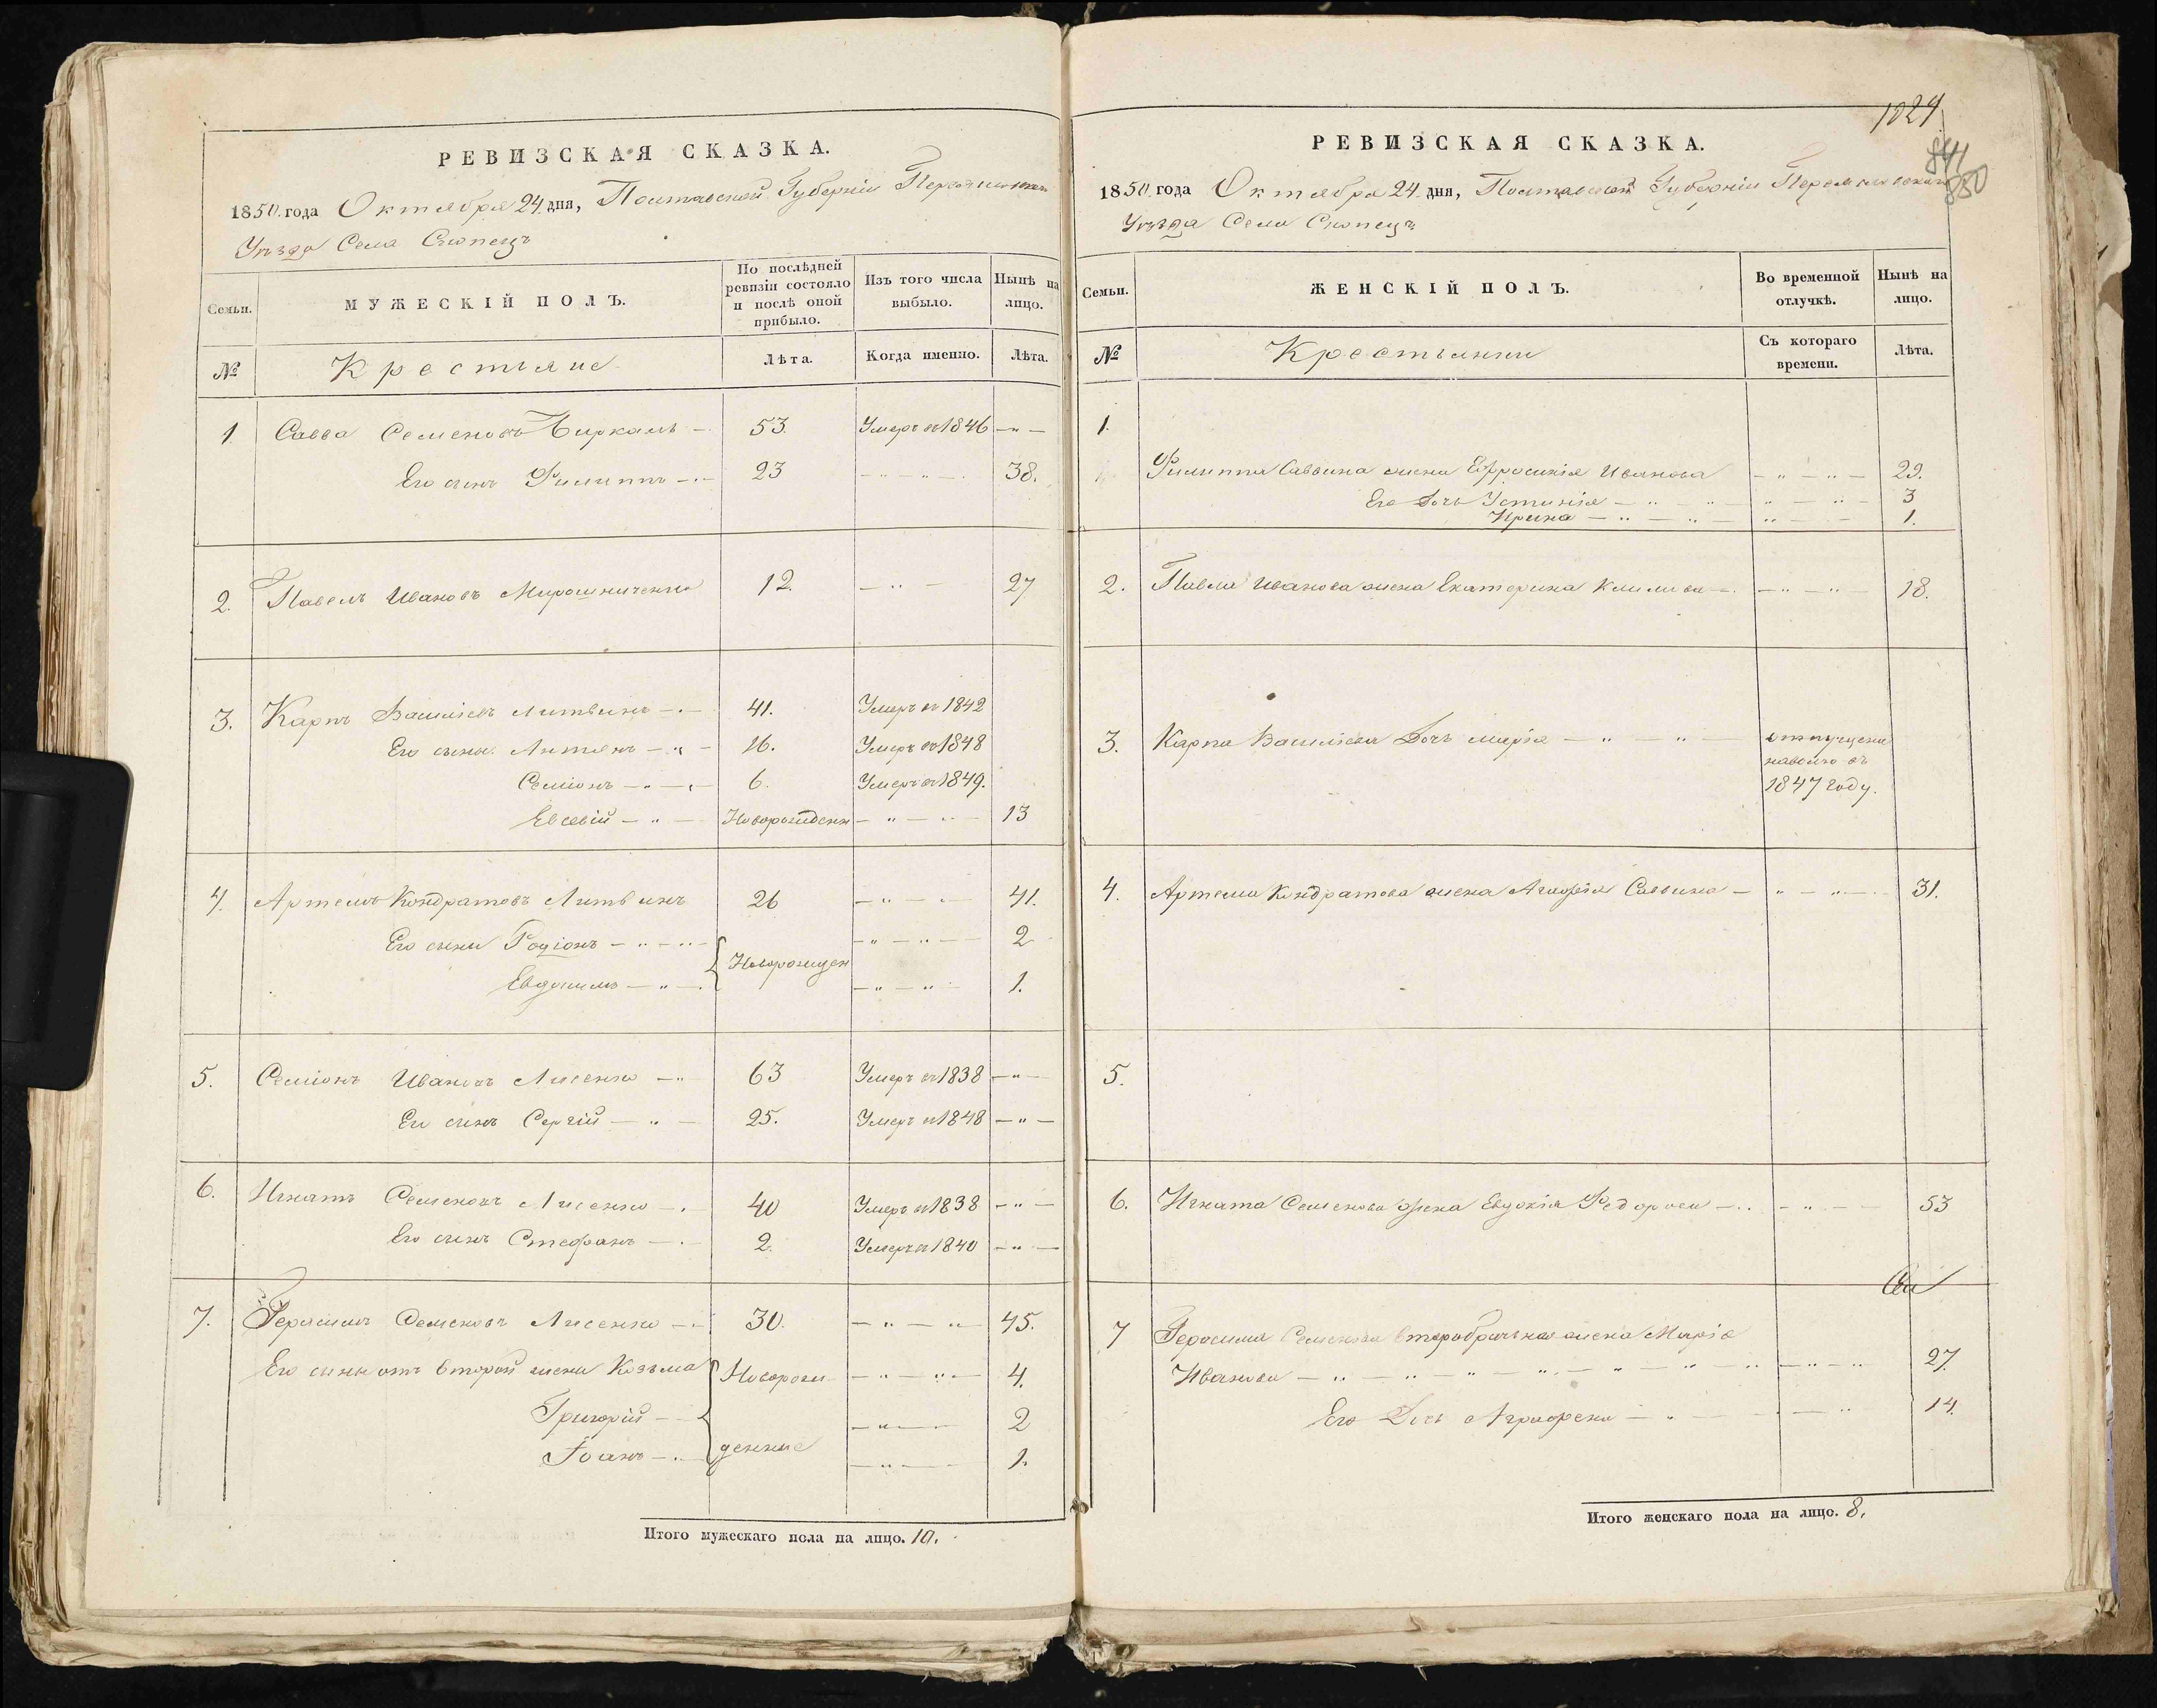 РЕВИЗСКАЯ СКАЗКА.
1850. года Октября 24. дня, Полтавской Губерніи
Уѣзда Села
Семьи.
МУЖЕСКІЙ ПОЛЪ.
По послѣдней ревизіи состояло и послѣ оной прибыло.
Изъ того числа выбыло.
Нынѣ на лицо.
№
Крестьяне
Лѣта.
Когда именно.
Лѣта.
1 Савва Семеновъ 53. Умеръ въ 1846 — „ —
Его сынъ Филиппъ — 23 — „ — „ — 38.
2. Павелъ Ивановъ Мирошниченко 12. — „ — 27
3. Карпъ Васильевъ Литвинъ — 41. Умеръ въ 1842
Его сыны. Антонъ — „ — 16. Умеръ въ 1848
Семіонъ — „ — 6. Умеръ въ 1849.
Евсевій — „ — Новорожденн — „ — „ — 13
4. Артемъ Кондратовъ Литвинъ 26 — „ — „ — 41.
Его сыны Родіонъ — „ — „ — — „ — „ — 2
Новорожден
Евдокимъ — „ — — „ — „ — 1.
5. Семіонъ Ивановъ Лисенко — „ 63 Умеръ въ 1838 — „ —
Его сынъ Сергій — „ — 25. Умеръ въ 1848 — „ —
6. Игнатъ Семеновъ Лисенко — 40 Умеръ въ 1838 — „ —
Его сынъ Стефанъ — 2. Умеръ въ 1840 — „ —
7. Герасимъ Семеновъ Лисенко — 30. — „ — „ 45.
Его сыны отъ второй жены Козьма Новорож- — „ — „ — 4.
Григорій — — „ — 2
Іоанъ — денные — „ — 1.
Итого мужескаго пола на лицо. 10.
1024
841
880
РЕВИЗСКАЯ СКАЗКА.
1850. года Октября 24. дня, Полтавской Губерніи
Уѣзда Села
Семьи.
ЖЕНСКІЙ ПОЛЪ.
Во временной отлучкѣ.
Нынѣ на лицо.
№
Крестьянки
Съ котораго времени.
Лѣта.
1.
Филиппа Саввина жена Ефросинія Иванова — „ — „ — 29.
Его дочь Устинія — „ — „ „ — „ — 3
Ирина — „ — „ — „ — 1.
2. Павла Иванова жена Екатерина — „ — „ — 18.
3. Карпа Васильева дочь Марія — „ — „ — отпущена
наволю въ
1847 году.
4. Артема Кондратова жена Агафія Саввина — „ — „ — 31.
5.
6. Игната Семенова жена Евдокія Федорова — „ — „ — 53
7 Герасима Семенова второбрачная жена Марія
Иванова — „ — „ — „ — „ — „ — „ — „ — „ 27.
Его дочь Агрифена — „ — — „ 14.
Итого женскаго пола на лицо. 8.